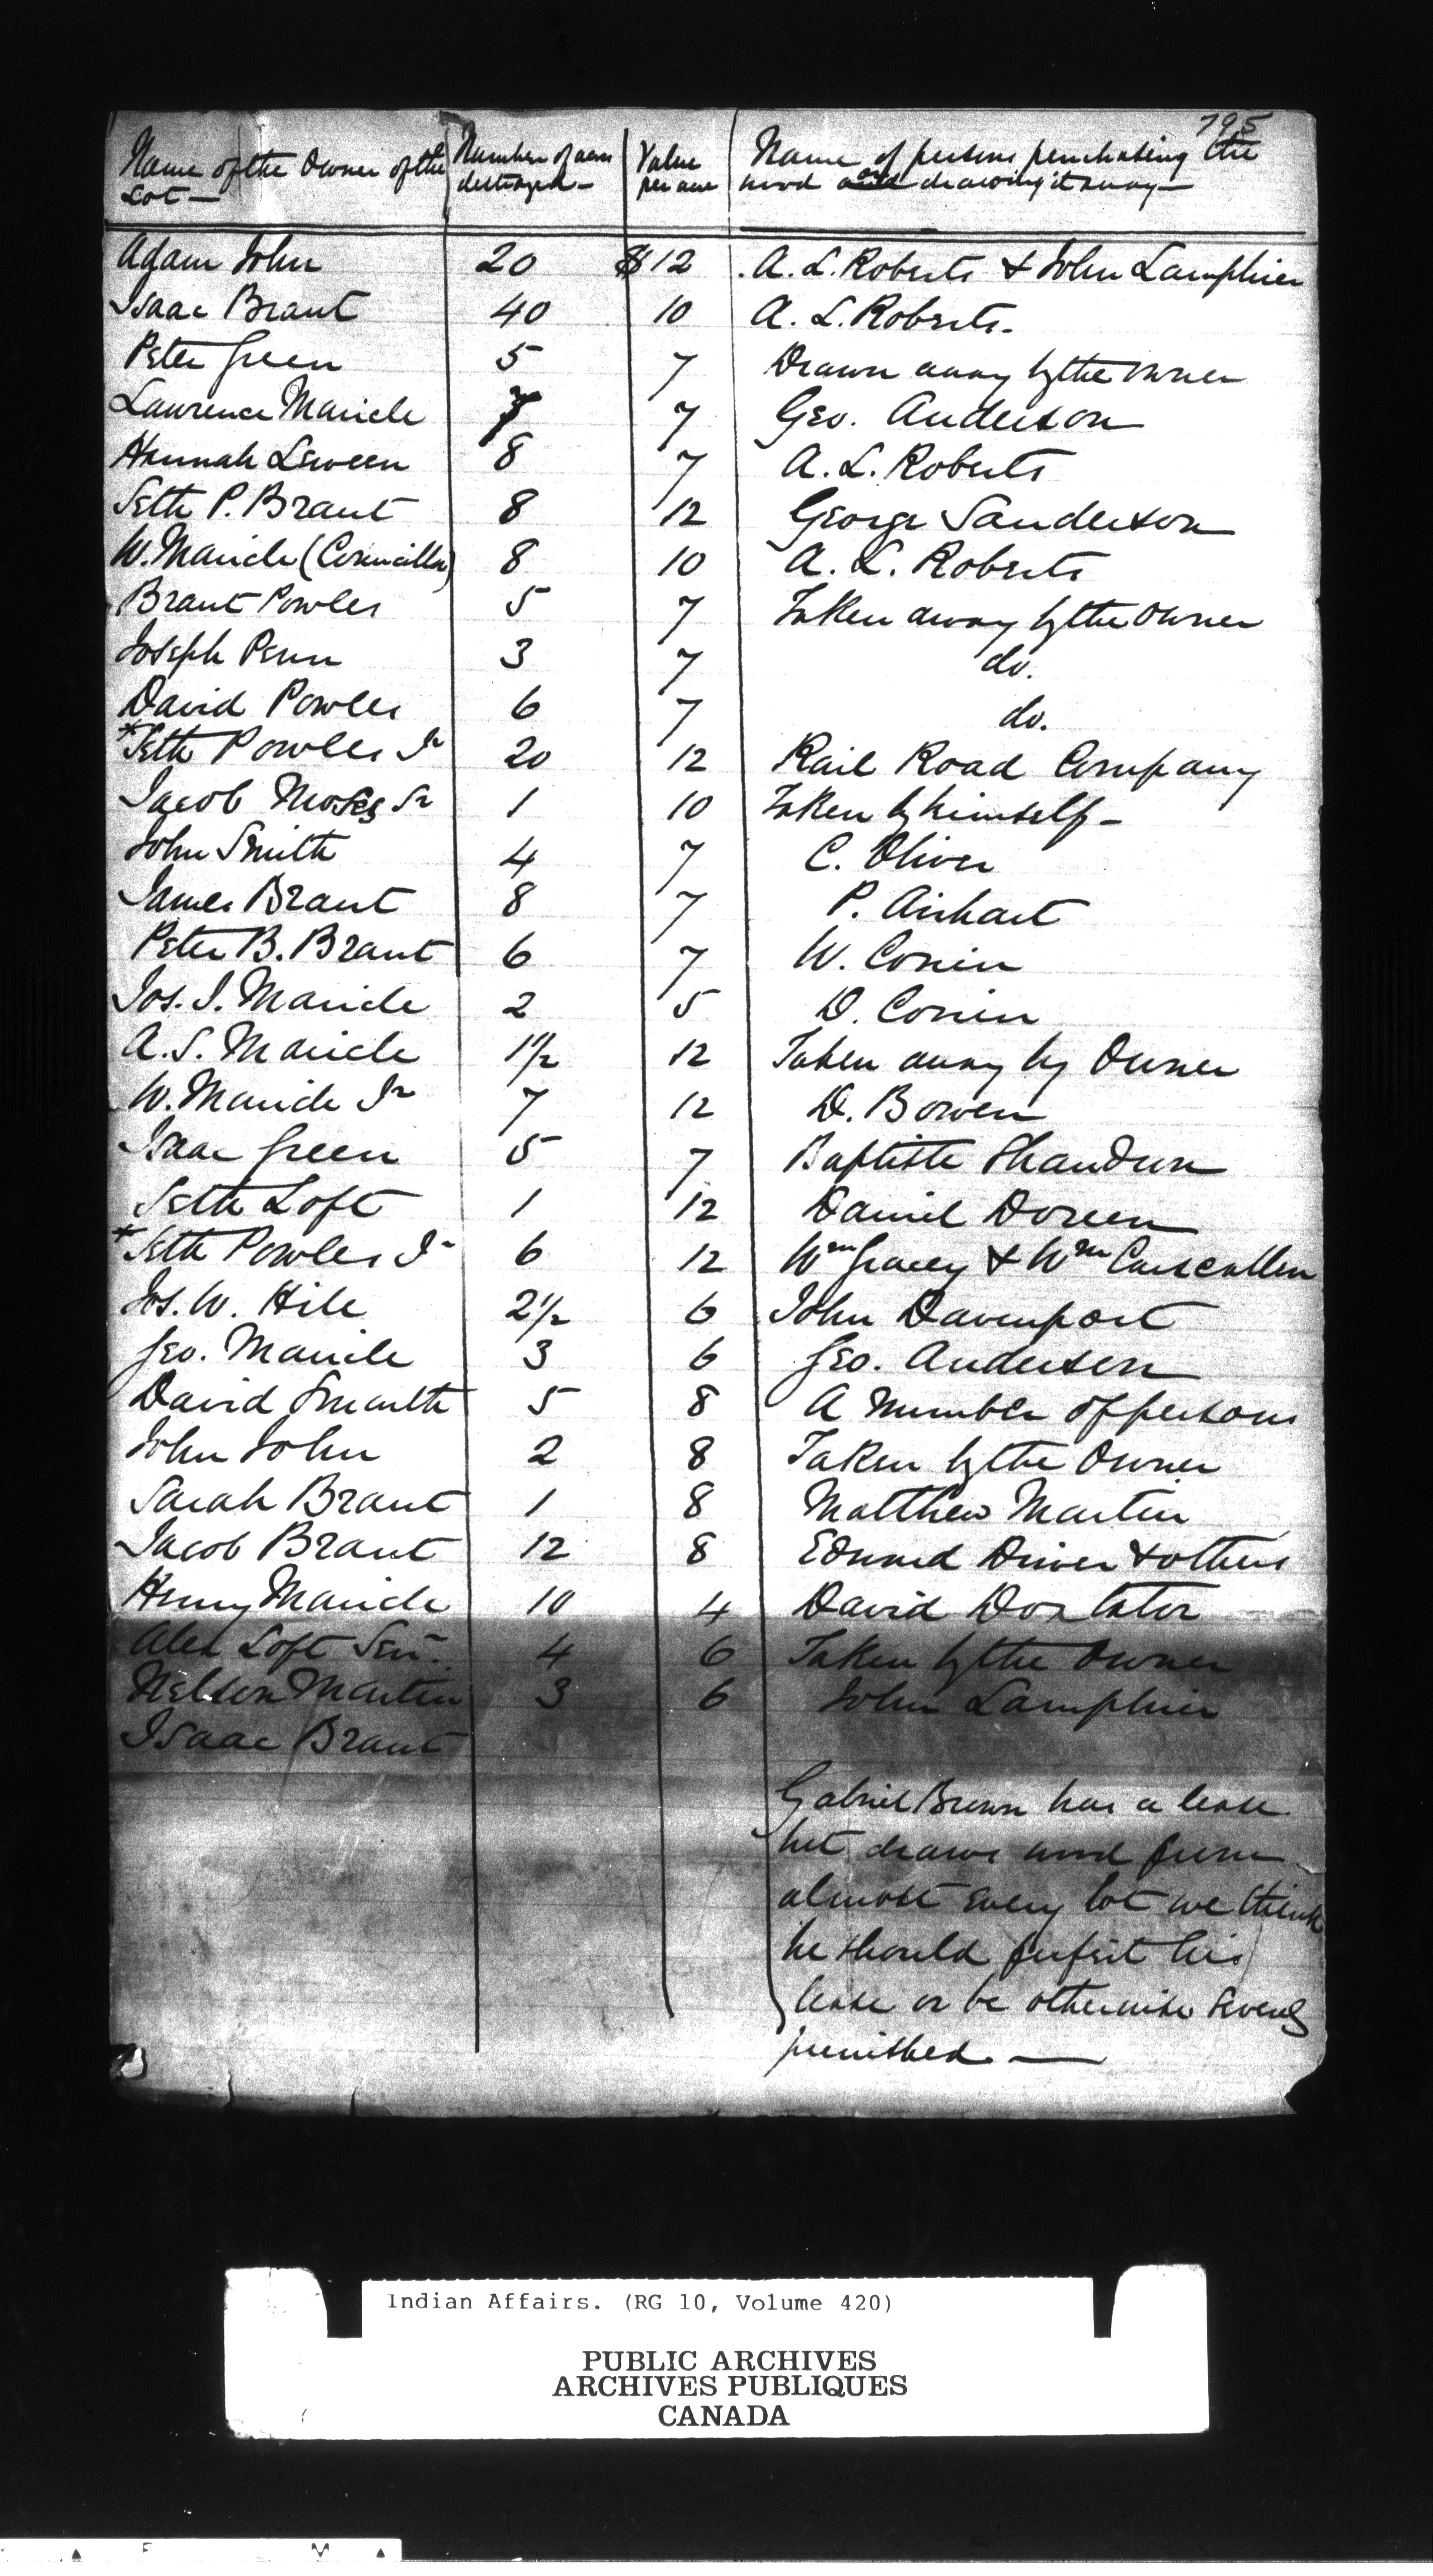 795
Name of the Owner of the Lot — Number of acres destroyed — Value per acre Name of persons purchasing the wood and drawing it away —
Adam John 20 $12 A. L. Roberts & John Lamphier
Isaac Brant 40 10 A. L. Roberts.
Peter Green 5 7 Drawn away by the owner
Lawrence Maricle 7 7 Geo. Anderson
Hannah 8 7 A. L. Roberts
Seth P. Brant 8 12 George Sanderson
W. Maricle (Councillor) 8 10 A. L. Roberts
Brant Powles 5 7 Taken away by the owner
Joseph Penn 3 7 do.
David Powles 6 7 do.
*Seth Powles Jr 20 12 Rail Road Company
Jacob Moses Sr 1 10 Taken by himself —
John Smith 4 7 C. Oliver
James Brant 8 7 P. Airhart
Peter B. Brant 6 7 W. Conin
Jos. J. Maricle 2 5 D. Conin
A. S. Maricle 1 1/2 12 Taken away by Owner
W. Maricle Jr 7 12 D. Bowen
Isaac Green 5 7 Baptiste
Seth Loft 1 12 Daniel Doreen
*Seth Powles Jr 6 12 Wm Gracey & Wm Carscallen
Jos. W. Hill 2 1/2 6 John Davenport
Geo. Maricle 3 6 Geo. Anderson
David Smarth 5 8 A Number of persons
John John 2 8 Taken by the Owner
Sarah Brant 1 8 Matthew Martin
Jacob Brant 12 8 Edward Driver & others
Henry Maricle 10 4 David Doxtator
Alex Loft Senr. 4 6 Taken by the Owner
Nelson Martin 3 6 John Lamphier
Isaac Brant
Gabriel Brown has a lease
but draws wood from
almost every lot we think
he should forfeit his
lease or be otherwise severely
punished. —
Indian Affairs. (RG 10, Volume 420)
PUBLIC ARCHIVES
ARCHIVES PUBLIQUES
CANADA